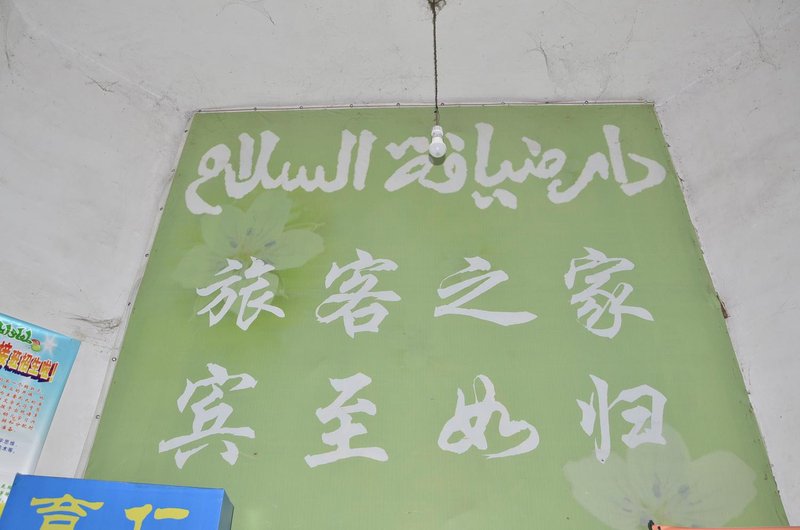 دار ضيافة السلام
旅客之家
宾至如归
招生啦!
育仁